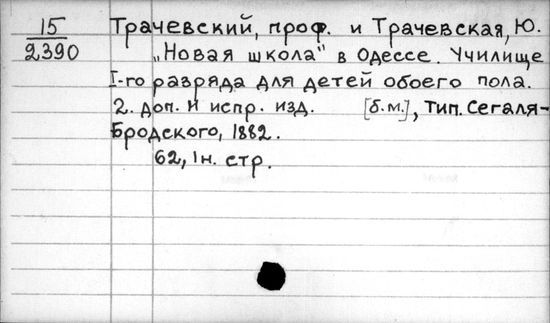 15
2390
Трачевский, проф. и Трачевская, Ю.
„Новая школа" в Одессе. Училище
I-го разряда для детей обоего пола.
2. доп. и испр. изд. [б.м.], тип. Сегаля-
Бродского, 1882.
62, 1н. стр.